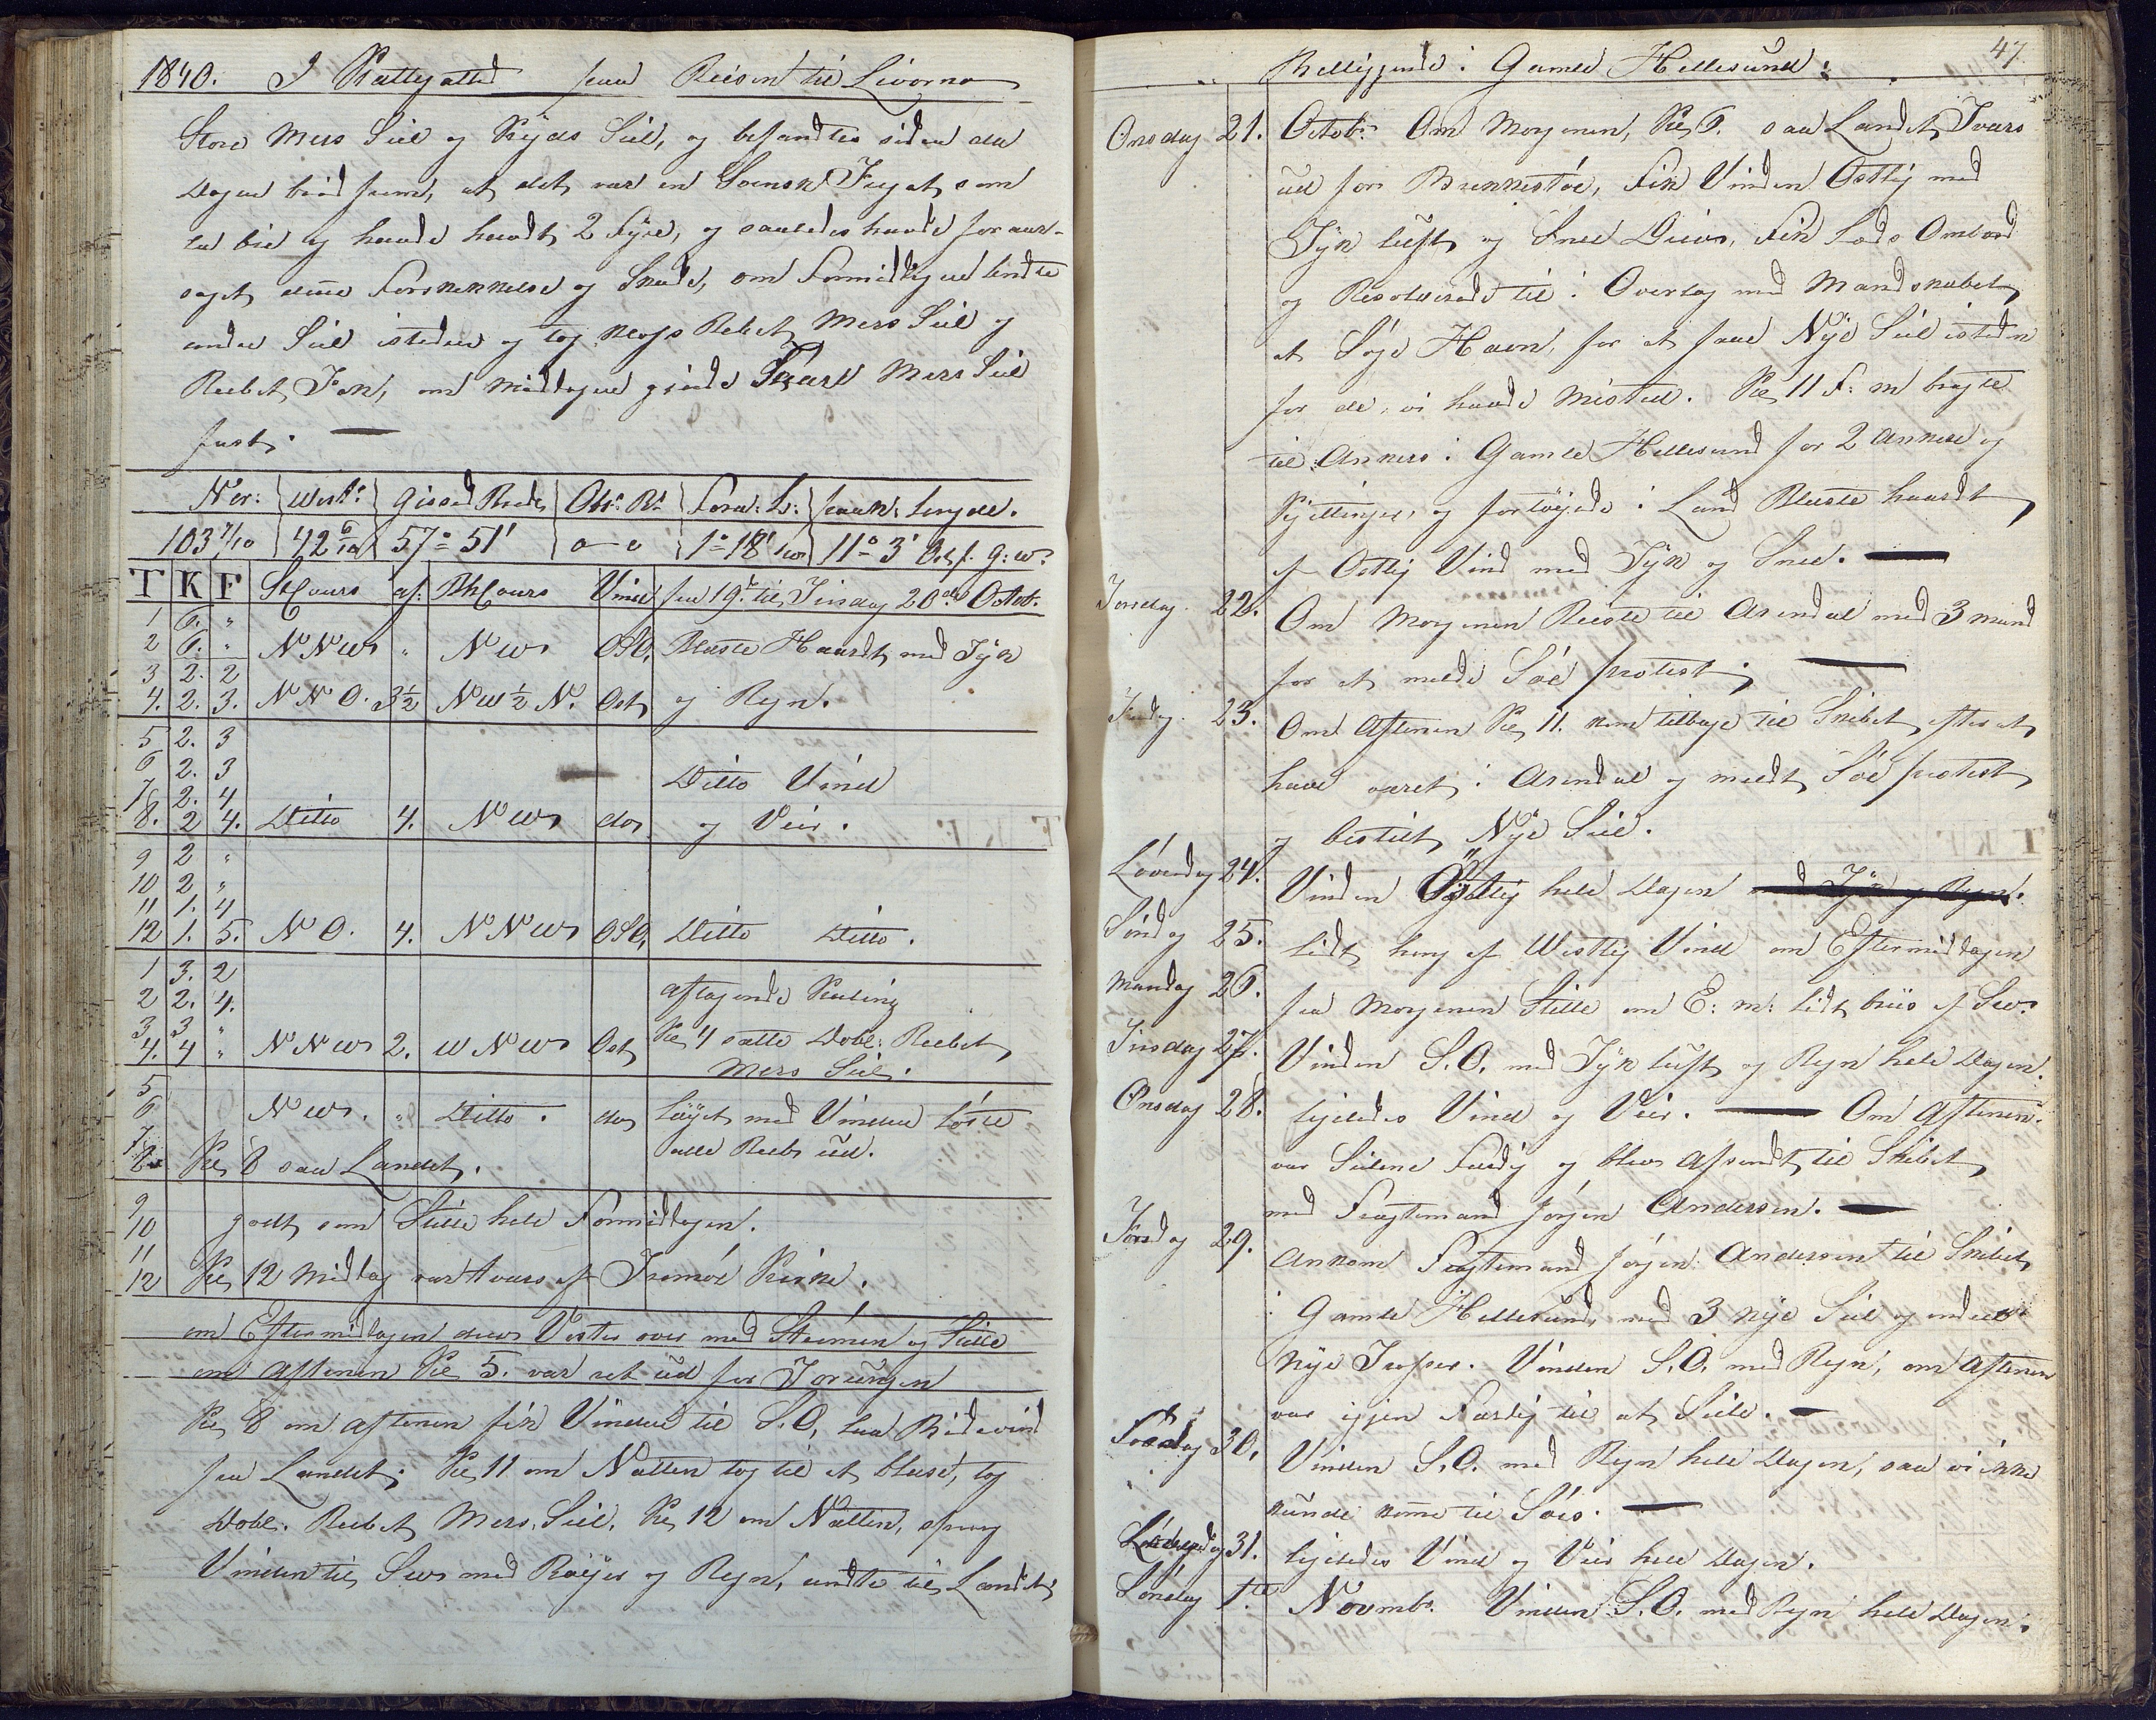 1840. I Kattegatted paa Reisen til Livorno
Store Mers Seil og Kryds Seil, og befandtes siden da
Dagen brød frem, at det var en Svensk Fregat, som
laa bie og havde havdt 2 Fyre, og saaledes havde foraar-
saget denne Forskrekkelse og Skade, om Formidagen lindte
under Seil isteden og tog Klos Rebet Mers Seil og
Rebet Fok, om Middagen giorde Store Mers Seil
fast. —
Nor: West: Gissed Brede Obs: Br. Forn: L: paak: Lengde.
103 7/10 42 6/10 57° 51' o—o 1° 18' 11° 3' Ost f. G: W:
T K F StCours af: BhCours Vind fra 19de til Tirsdag 20de Octob:
1 6. "
2 6. " NNW " NW OSO, Bleste Haardt med Tyk
3 2. 2
4. 2. 3. NNO. 3½ NW½N. Ost og Regn.
5 2. 3
6 2. 3 Ditto Vind
7 2. 4
8. 2 4. Ditto 4. NW do og Veir.
9 2 "
10 2 "
11 1. 4
12 1. 5. NO. 4. NNW OSO, Ditto Ditto.
1 3. 2
2 2. 4. aftagende Kuling
3 3 " Kl 4 satte Dobl: Rebet
4. 4 " NNW 2. WNW Ost Mers Seil.
5
6 NW. " Ditto. do Løyet med Vinden løste
7 alle Rebs ud.
8 Kl 8 saa Landet.
9
10 godt som Stille hele Formidagen.
11
12 Kl 12 Middag var tvers af Tromøe Kirke.
om Eftermidagen drev Vester over med Strømen og Stille
om Aftenen Kl 5. var ret ud for Torungen
Kl 8 om Aftenen fik Vinden til S.O, laa Bidevind
fra Landet; Kl 11 om Natten tog til at blese, tog
Dobl: Rebet Mers. Seil. Kl 12 om Natten, sprang
Vinden til SW med Bøyer og Regn, vendte til Landet,
47
Beliggende i Gamle Hellesund:
Onsdag 21. Octob: Om Morgenen, Kl 6. saa Landet, Tvers
ud for Brekkestøe, Fik Vinden Ostlig med
Tyk luft og Snee Driv, Fik Lods Ombord
og Resolverede til i Overlag med Mandskabet,
at Søge Havn, for at faae Nye Seil isteden
for de, vi havde Mistet. Kl 11 F: m bragte
til Ankers i Gamle Hellesund for 2 Ankere og
Kjettinger, og fortøyede i Land Bleste haardt
af Ostlig Vind med Tyk og Snee. —
Torsdag 22. Om Morgenen Reiste til Arendal med 3 mand
for at melde Søe protest. —
Fredag. 23. Om Aftenen Kl 11. kom tilbage til Skibet, efter at
have været i Arendal og meldt Søe protest
og bestilt Nye Seil.
Løverdag 24. Vinden Ostlig hele Dagen med Tyk og Regn.
Søndag 25. Lidt lug af Westlig Vind om Eftermidagen
Mandag 26. fra Morgenen Stille om E: m: lidt briis af SW.
Tirsdag 27. Vinden S.O. med Tyk luft og Regn hele Dagen.
Onsdag 28. ligeledes Vind og Veir. — Om Aftenen
var Seilene Færdig og blev afsendt til Skibet
med Fragtemand Jørgen Andersen. —
Torsdag 29. Ankom Fragtemand Jørgen Andersen til Skibet
i Gamle Hellesund, med 3 nye Seil og endeel
Nye Trosser. Vinden S.O. med Regn, om Aftenen
var igjen Færdig til at Seile. —
Fredag 30. Vinden S.O. med Regn hele Dagen, saa vi ikke
kunde kome til Søes. —
Løverdag 31. ligeledes Vind og Veir hele Dagen.
Søndag 1te Novemb: Vinden S.O. med Regn hele Dagen.